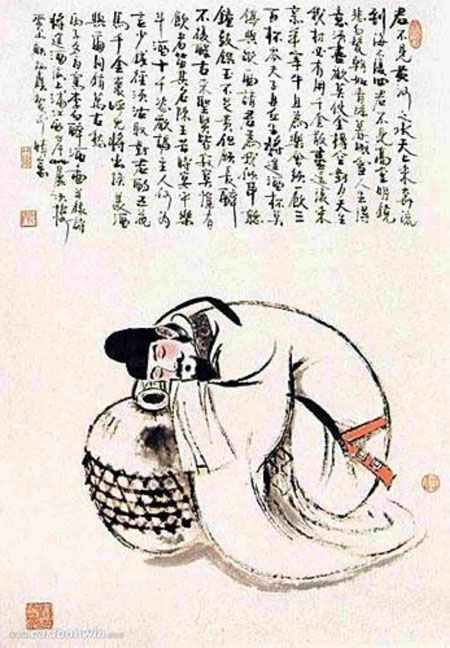 君不見黃河之水天上來奔流
到海不復回君不見高堂明鏡
悲白髮朝如青絲暮成雪人生得
意須盡歡莫使金樽空對月天生
我材必有用千金散盡還復來
烹羊宰牛且為樂會須一飲三
百杯岑夫子丹丘生將進酒杯莫
停與君歌一曲請君為我傾耳聽
鐘鼓饌玉不足貴但願長醉
不復醒古來聖賢皆寂寞惟有
飲者留其名陳王昔時宴平樂
斗酒十千恣歡謔主人何為
言少錢徑須沽取對君酌五花
馬千金裘呼兒將出換美酒
與爾同銷萬古愁